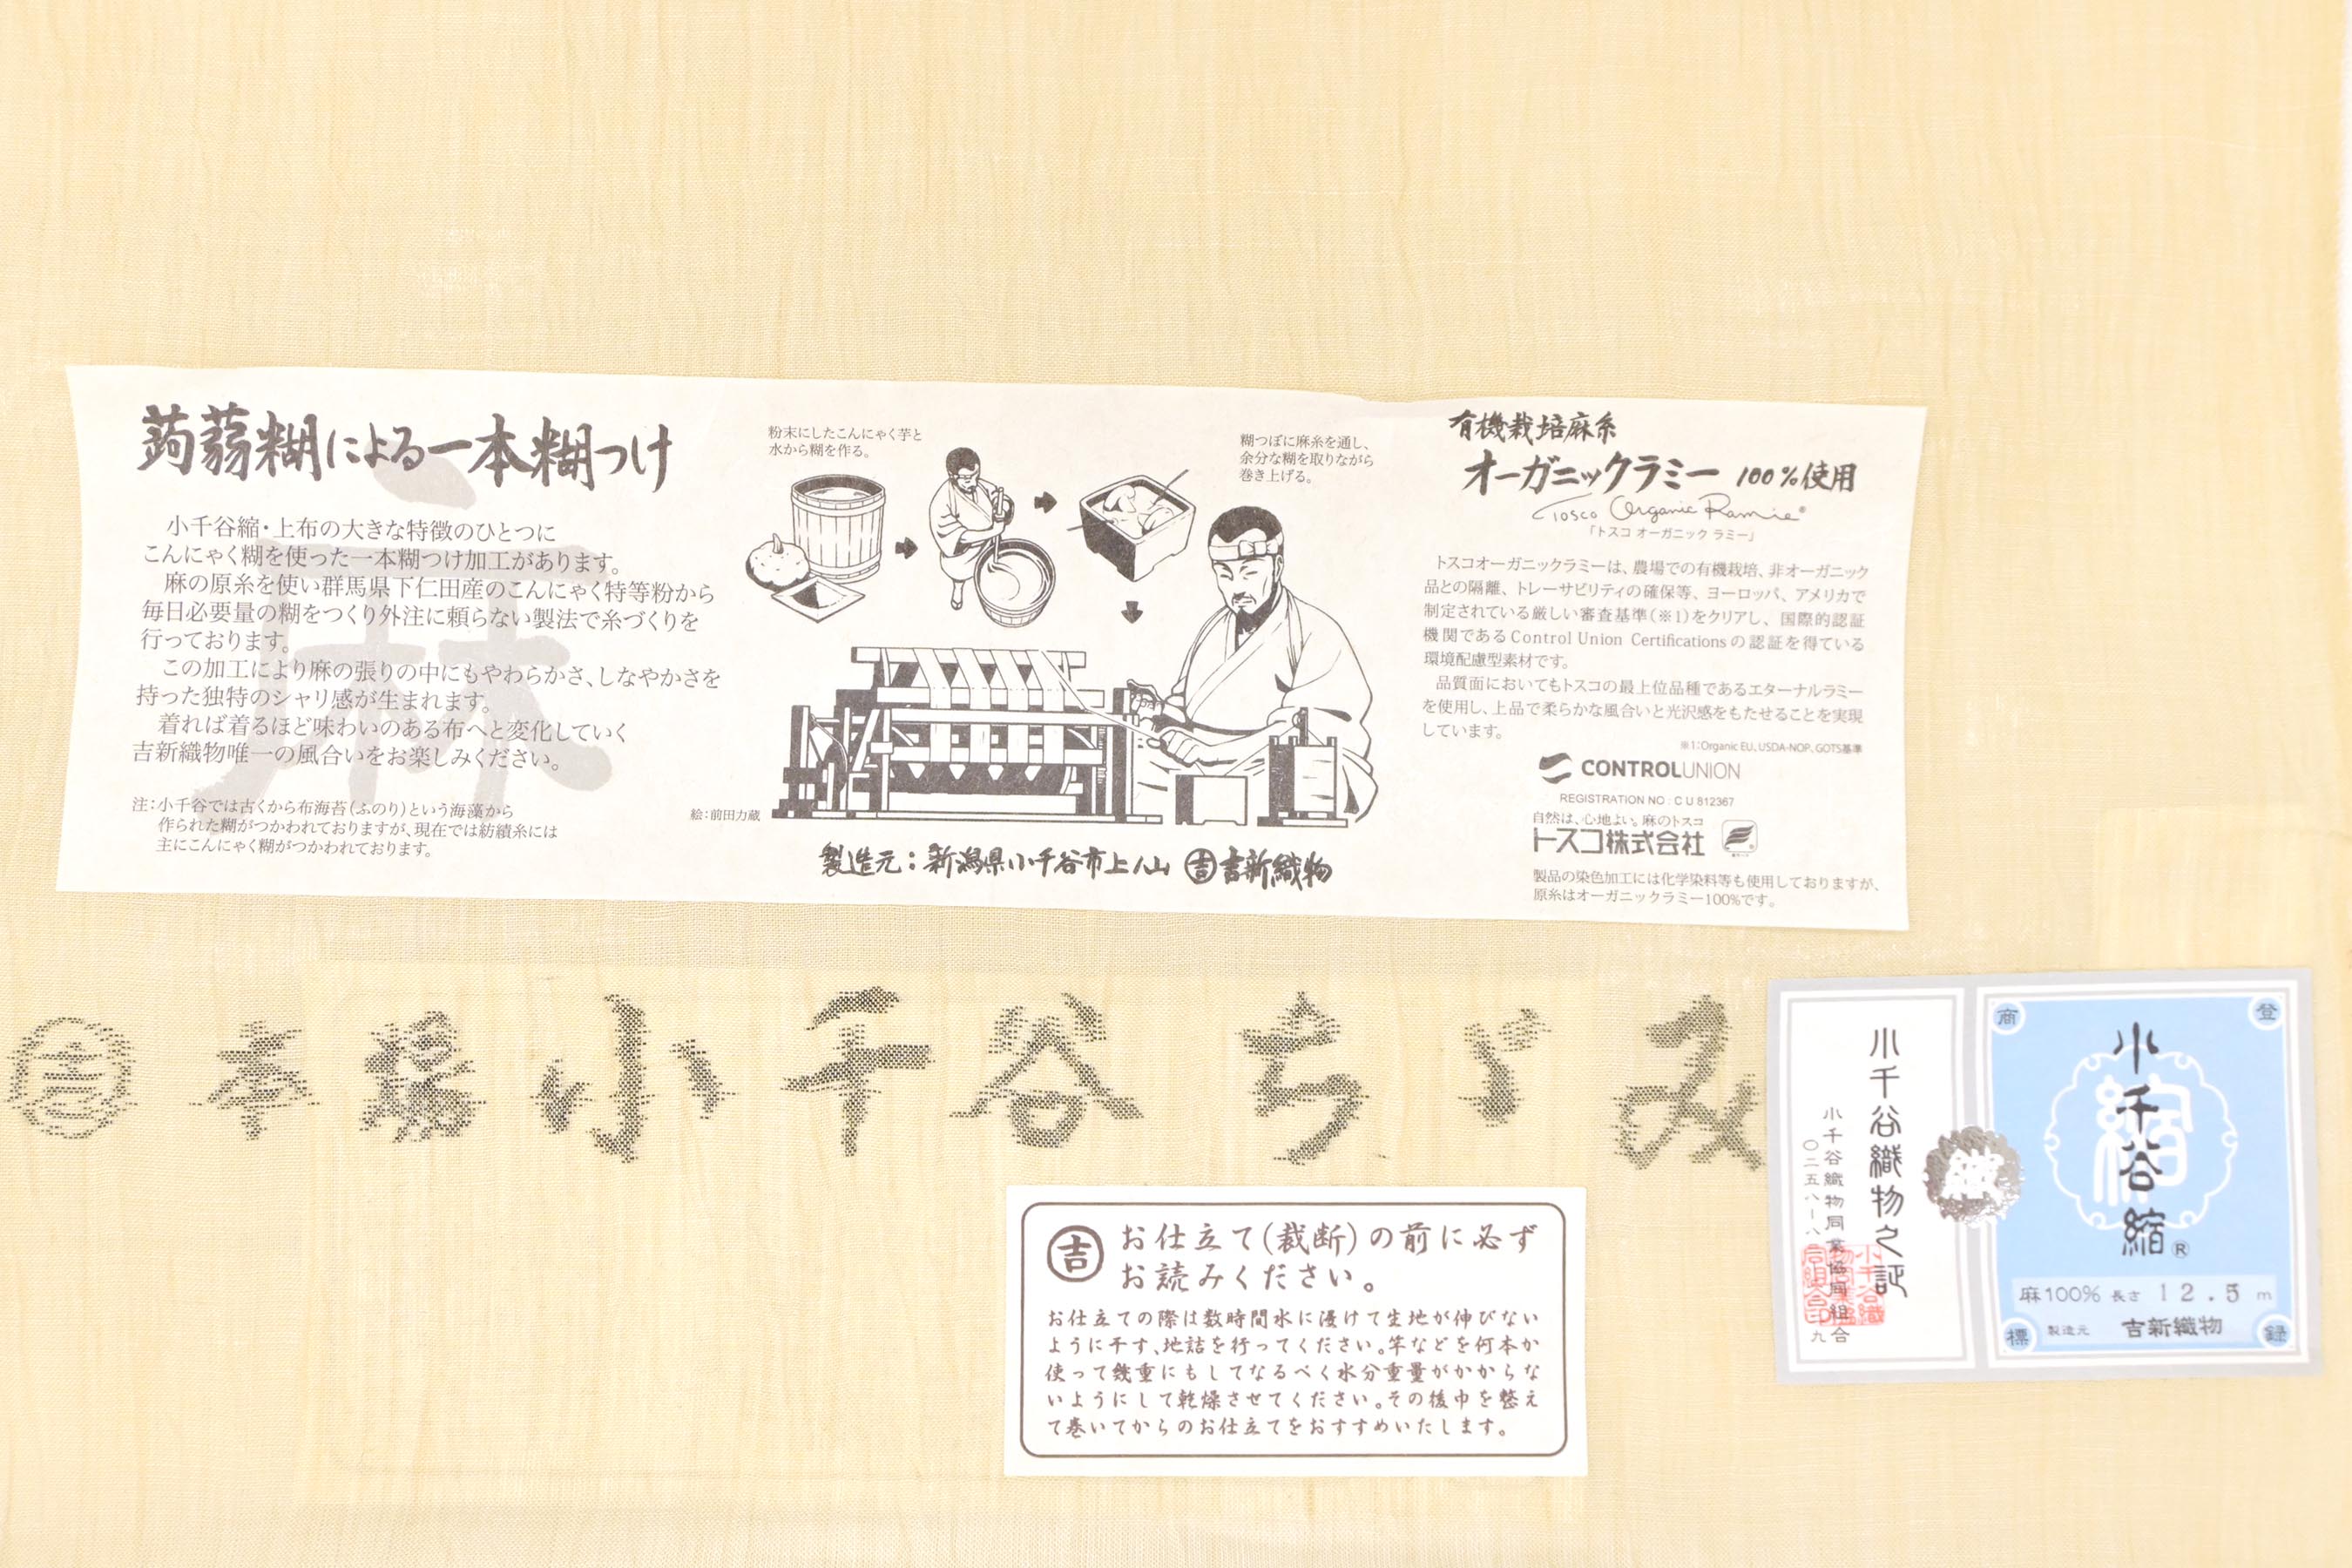 蒟蒻糊による一本糊つけ
小千谷縮・上布の大きな特徴のひとつに
こんにゃく糊を使った一本糊つけ加工があります。
麻の原糸を使い群馬県下仁田産のこんにゃく特等粉から
毎日必要量の糊をつくり外注に頼らない製法で糸づくりを
行っております。
この加工により麻の張りの中にもやわらかさ、しなやかさを
持った独特のシャリ感が生まれます。
着れば着るほど味わいのある布へと変化していく
吉新織物唯一の風合いをお楽しみください。
麻
注：小千谷では古くから布海苔（ふのり）という海藻から
作られた糊がつかわれておりますが、現在では紡績糸には
主にこんにゃく糊がつかわれております。
粉末にしたこんにゃく芋と
水から糊を作る。
糊つぼに麻糸を通し、
余分な糊を取りながら
巻き上げる。
絵：前田力蔵
製造元：新潟県小千谷市上ノ山 吉 吉新織物
有機栽培麻糸
オーガニックラミー 100%使用
Tosco Organic Ramie®
「トスコ オーガニック ラミー」
トスコオーガニックラミーは、農場での有機栽培、非オーガニック
品との隔離、トレーサビリティの確保等、ヨーロッパ、アメリカで
制定されている厳しい審査基準（※1）をクリアし、国際的認証
機関であるControl Union Certificationsの認証を得ている
環境配慮型素材です。
品質面においてもトスコの最上位品種であるエターナルラミー
を使用し、上品で柔らかな風合いと光沢感をもたせることを実現
しています。
※1：Organic EU、USDA-NOP、GOTS基準
CONTROLUNION
REGISTRATION NO : C U 812367
自然は、心地よい。麻のトスコ
トスコ株式会社
製品の染色加工には化学染料等も使用しておりますが、
原糸はオーガニックラミー100%です。
吉 本場小千谷ちぢみ
吉
お仕立て（裁断）の前に必ず
お読みください。
お仕立ての際は数時間水に浸けて生地が伸びない
ように干す、地詰を行ってください。竿などを何本か
使って幾重にもしてなるべく水分重量がかからな
いようにして乾燥させてください。その後巾を整え
て巻いてからのお仕立てをおすすめいたします。
小千谷織物之証
小千谷織物同業協同組合
織
商
登
縮
小千谷縮®
麻100% 長さ 12.5 m
標
製造元 吉新織物
録